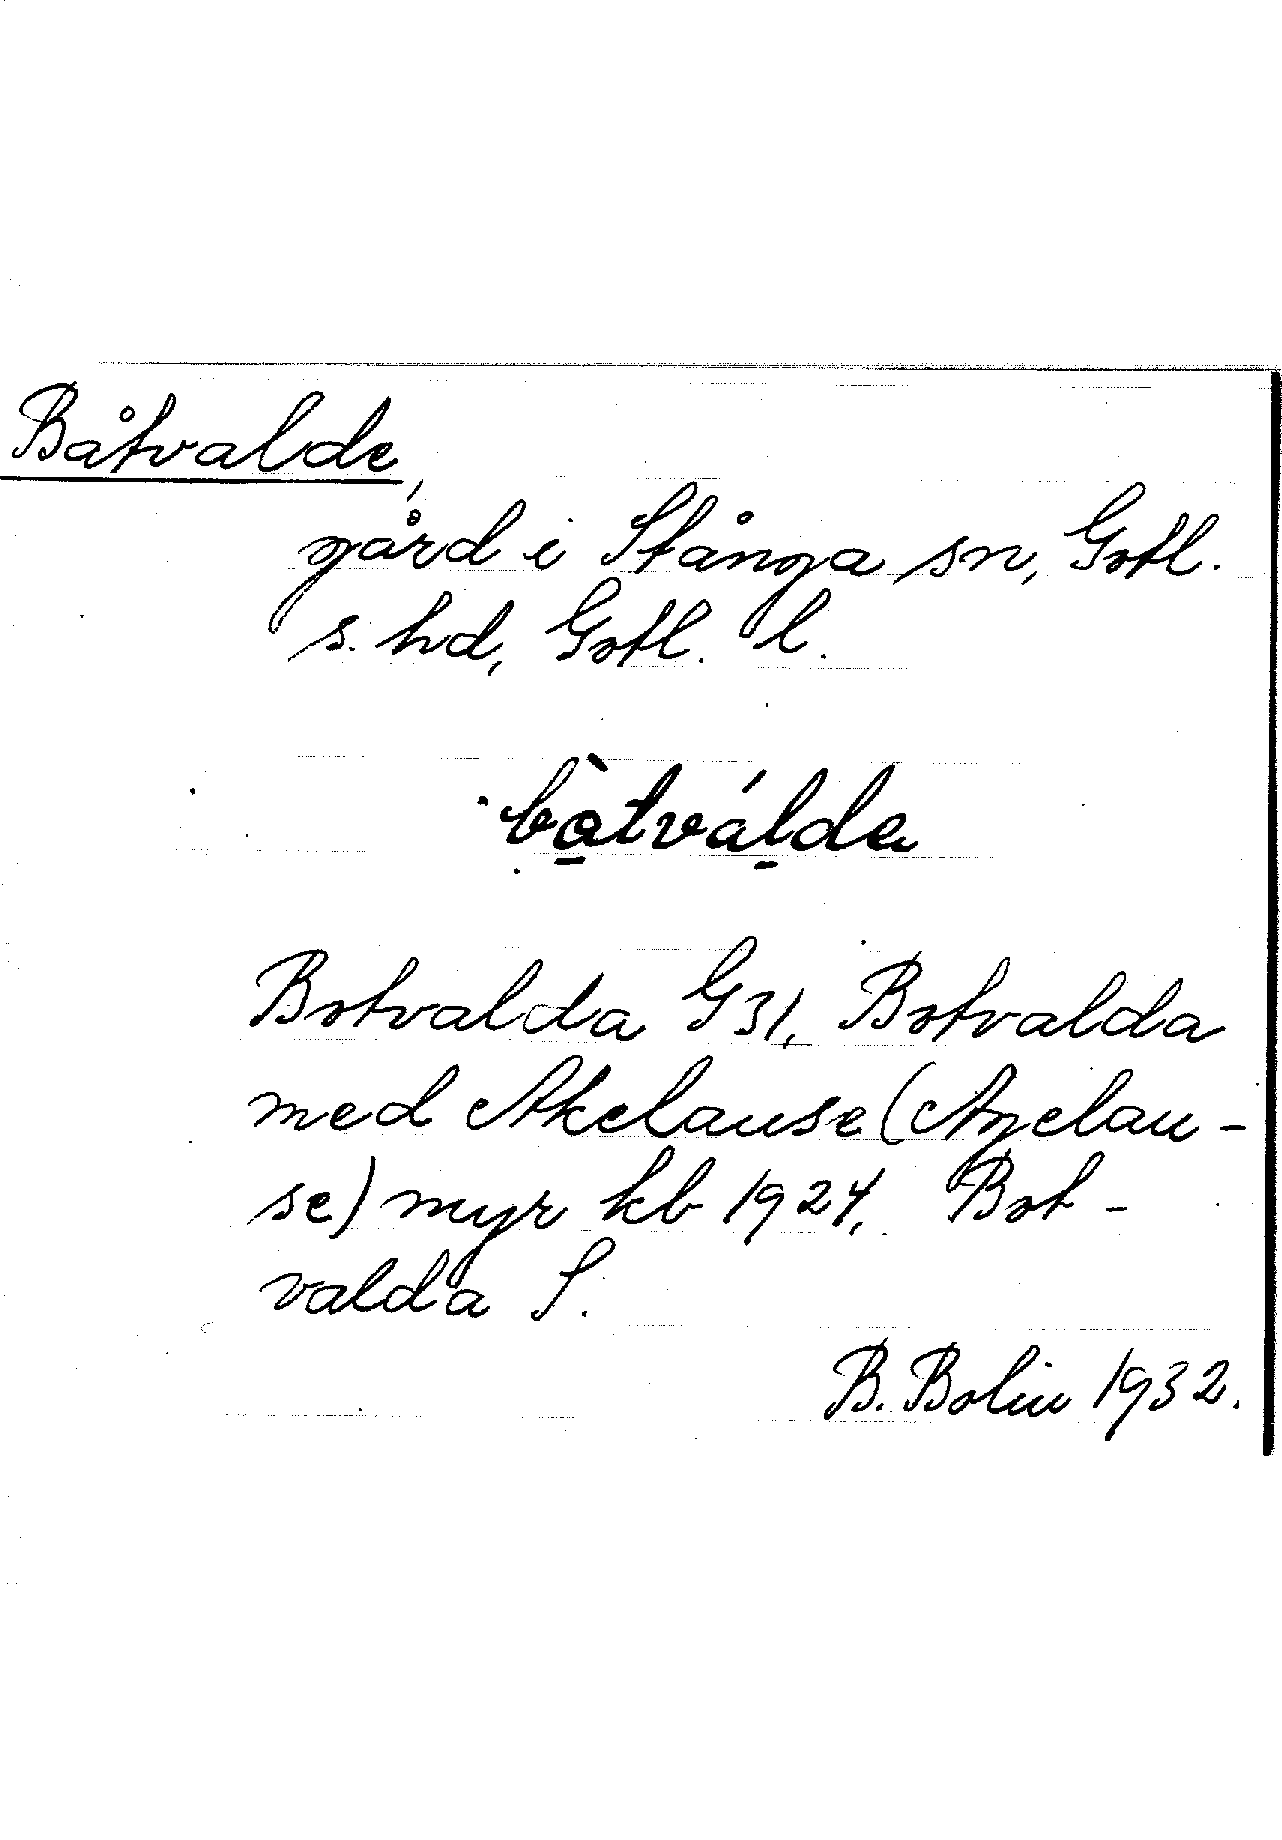 Båtvalde,
gård i Stånga sn, Gotl.
s. hd, Gotl. l.
bòtválda
Botvalda G 31, Botvalda
med Akelause (Agelau-
se) myr kb 1924, Bot-
valda S.
B. Bolin 1932.